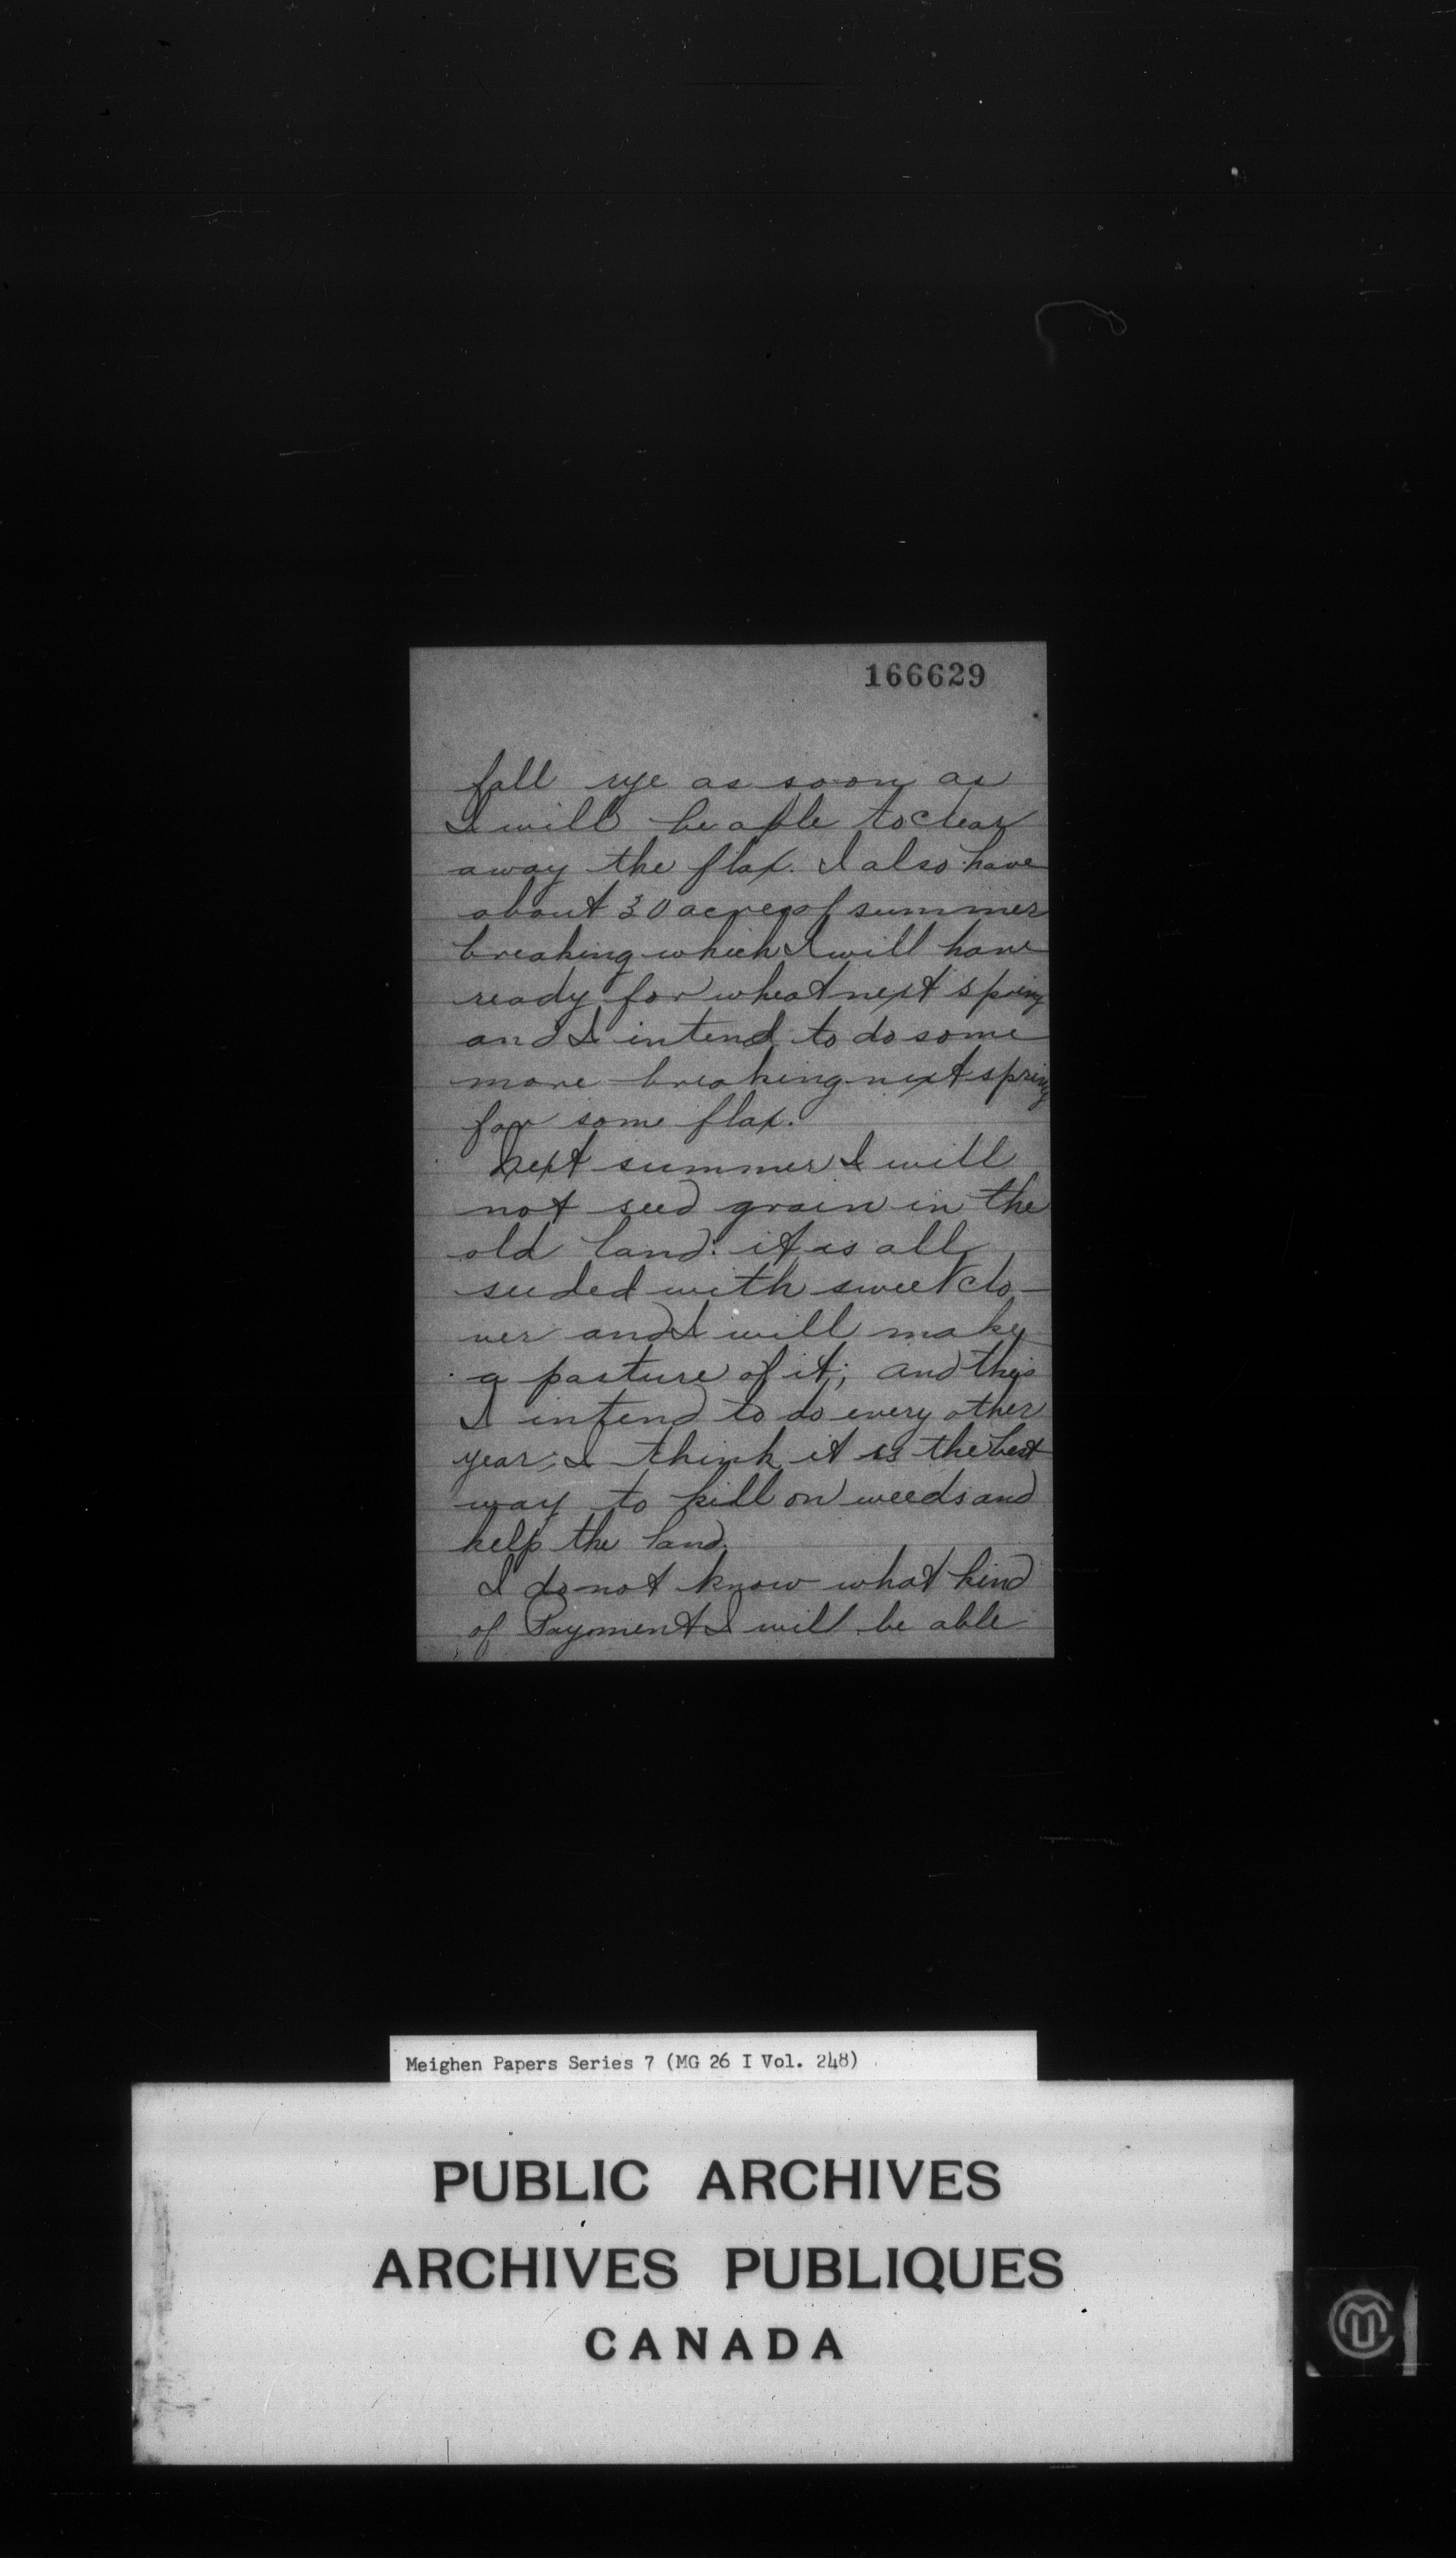 166629
fall rye as soon as
I will be able to clear
away the flax. I also have
about 30 acres of summer
breaking which I will have
ready for wheat next spring
and I intend to do some
more breaking next spring
for some flax.
Next summer I will
not seed grain in the
old land: it is all
seeded with sweet clo-
ver and I will make
a pasture of it; and this
I intend to do every other
year; I think it is the best
way to kill on weeds and
help the land.
I do not know what kind
of Payment I will be able
Meighen Papers Series 7 (MG 26 I Vol. 248)
PUBLIC ARCHIVES
ARCHIVES PUBLIQUES
CANADA